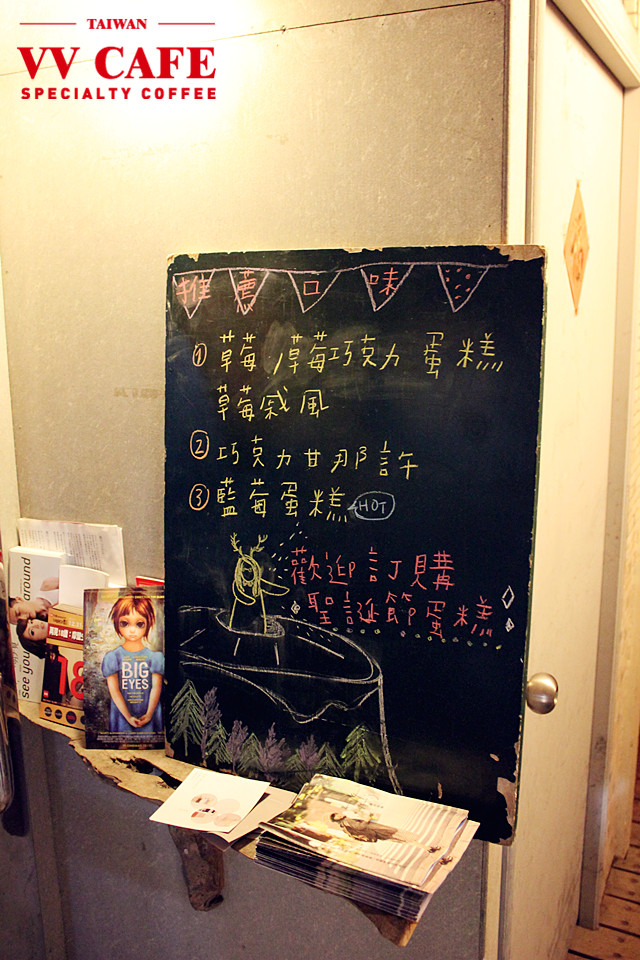 TAIWAN
VV CAFE
SPECIALTY COFFEE
推薦口味
① 草莓/草莓巧克力 蛋糕
草莓戚風
② 巧克力甘那許
③ 藍莓蛋糕 HOT
歡迎訂購
聖誕節蛋糕
see you around
18
BIG
EYES